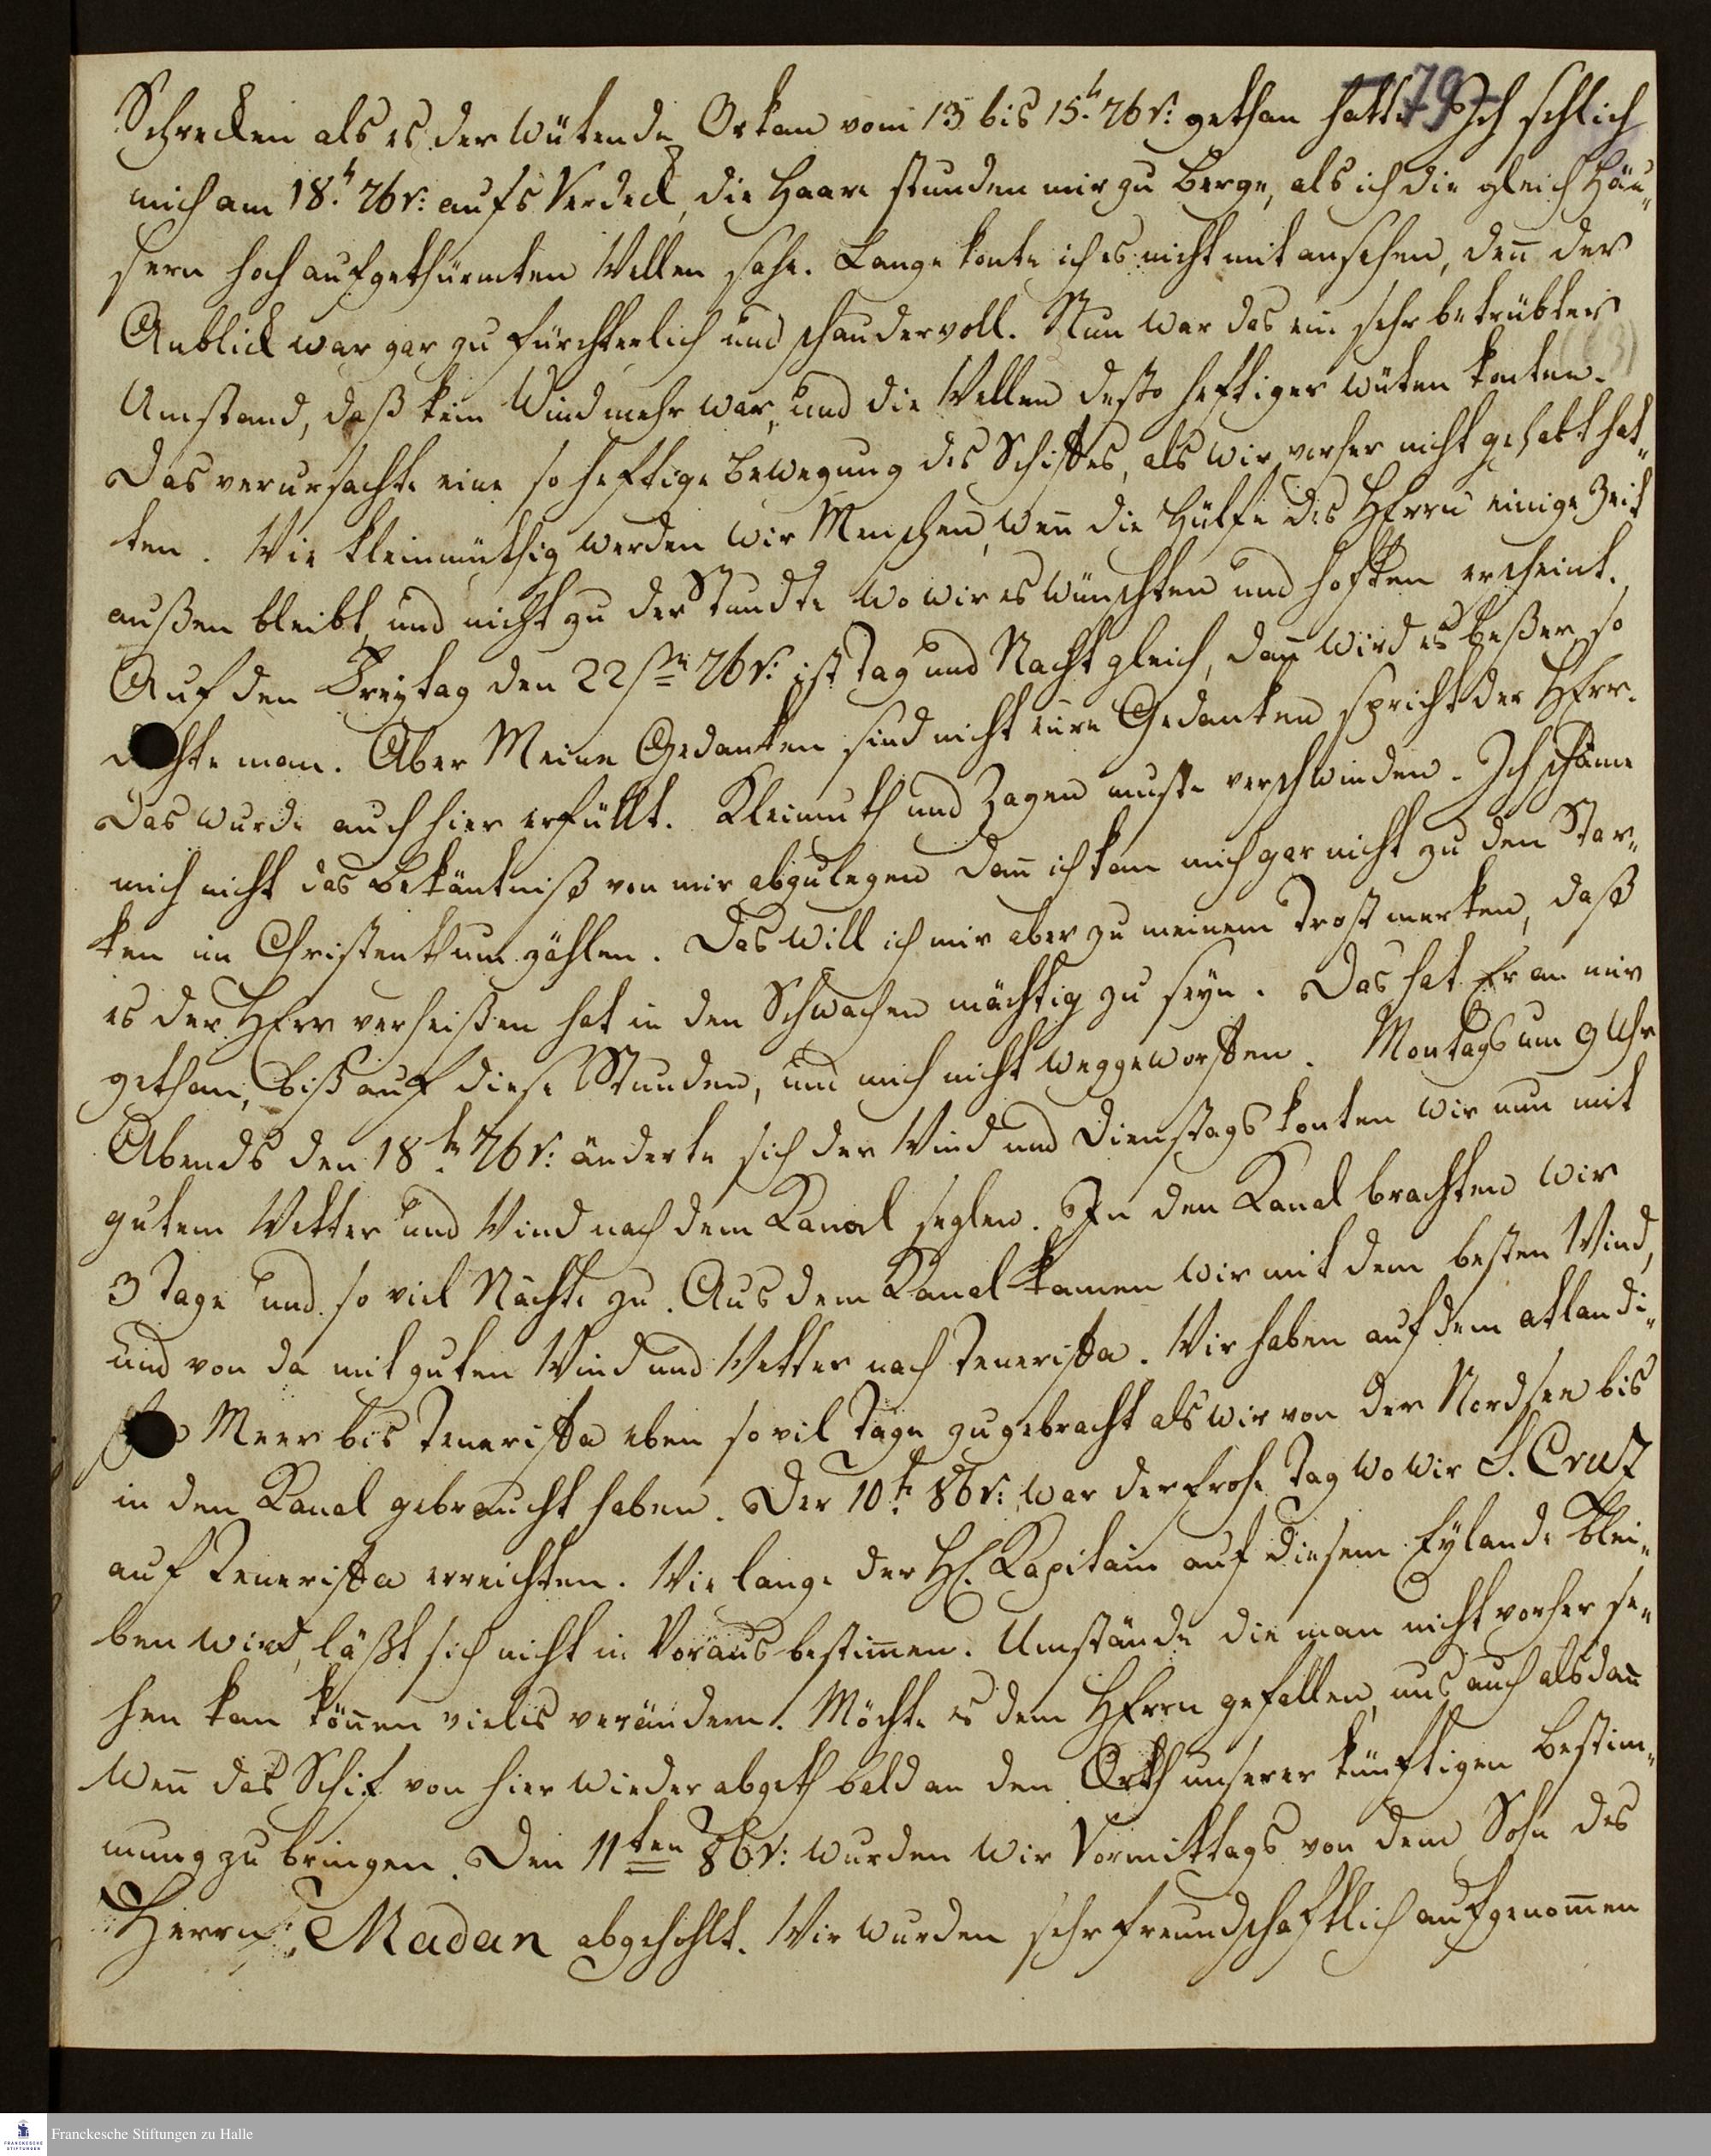 79
Schrecken als es der wütende Orkan vom 13 bis 15.t 7br: gethan hatte. Ich schlich
mich am 18.t 7br: aufs Verdeck, die Haare stunden mir zu Berge, als ich die gleich Häu„
sern hoch aufgethürmten Wellen sahe. Lange konte ich es nicht mit ansehen, den̄ der
Anblick war gar zu fürchterlich und schaudervoll. Nun war das ein sehr betrübter
Umstand, daß kein Wind mehr war, und die Wellen desto heftiger wüten konten.
Das verursachte eine so heftige Bewegung des Schiffes, als wir vorher nicht gehabt hat„
ten. Wie kleinmüthig werden wir Menschen, wen̄ die Hülfe des HErrn einige Zeit
außen bleibt, und nicht zu der Stundte wo wir es wünschten und hoften erscheint.
Auf den Freytag den 22sten 7br: ist Tag und Nacht gleich, dan̄ wird es beßer, so
dachte man. Aber Meine Gedanken sind nicht eure Gedanken spricht der HErr.
Das wurde auch hier erfüllt. Kleimuth und Zagen muste verschwinden. Ich schäme
mich nicht das Bekäntniß von mir abzulegen dan̄ ich kan mich gar nicht zu den Star„
ken im Christenthum zählen. Das will ich mir aber zu meinem Trost merken, daß
es der HErr verheißen hat in den Schwachen mächtig zu seyn. Das hat Er an mir
gethan, biß auf diese Stunden, und mich nicht weggeworffen. Montags um 9 Uhr
Abends den 18.te 7br: änderte sich der Wind und Dienstags konten wir nun mit
gutem Wetter und Wind nach dem Kanal seglen. In den Kanal brachten wir
3 Tage und so viel Nächte zu. Aus dem Kanal kamen wir mit dem besten Wind,
und von da mit guten Wind und Wetter nach Teneriffa. Wir haben auf dem atlandi„
schen Meer bis Teneriffa eben so vil Tage zugebracht als wir von der Nordsee bis
in den Kanal gebraucht haben. Der 10.t 8br: war der frohe Tag wo wir S. Cruz
auf Teneriffa erreichten. Wie lange der H. Kapitain auf diesem Eylande blei„
ben wird, läßt sich nicht in Voraus bestim̄en. Umstände die man nicht vorher se„
hen kan kön̄en vieles verändern. Möchte es dem HErrn gefallen, uns auch alsdan̄
wen̄ das Schif von hier wieder abgeth bald an den Orth unserer künftigen Bestim„
mung zu bringen. Den 11ten 8br: wurden wir Vormittags von dem Sohn des
Herrn Madan abgehohlt. Wir wurden sehr freundschaftlich aufgenom̄en
Franckesche Stiftungen zu Halle